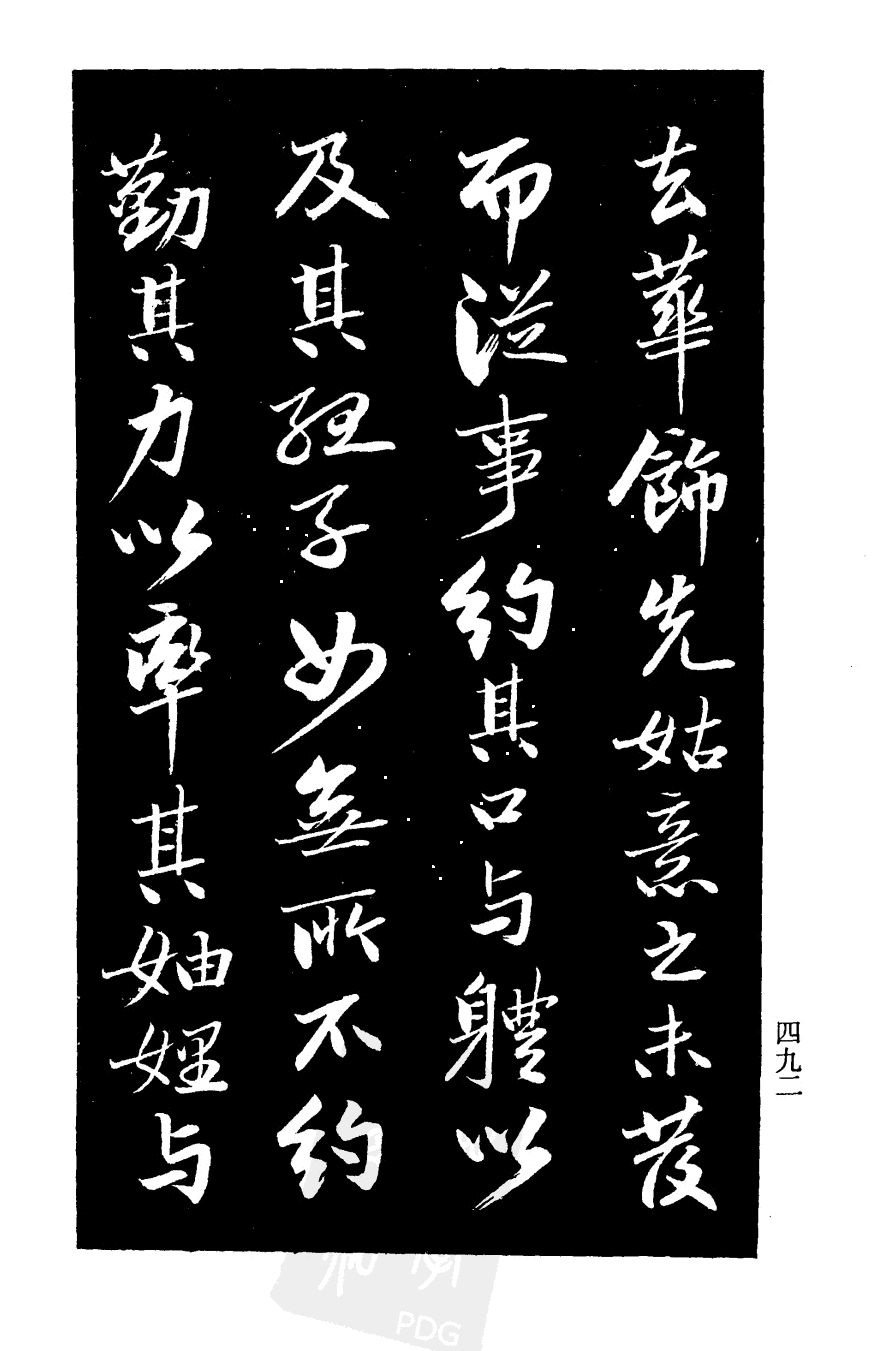 去華飾先姑意之未發
而從事約其口与體以
及其經子女無所不約
勤其力以率其妯娌与
四九二
PDG